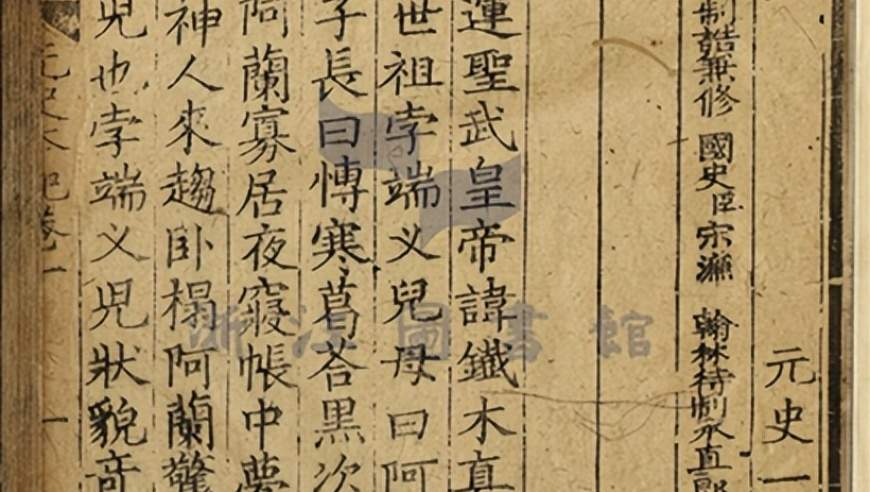 元史一
制誥兼修 國史臣宋濂 翰林待制承直郎
運聖武皇帝諱鐵木真
世祖孛端义兒母曰阿
子長曰博寒葛荅黑次
阿蘭寡居夜寢帳中夢
神人來趨卧榻阿蘭驚
兒也孛端义兒狀貌奇
元史本紀卷一
浙江圖書館